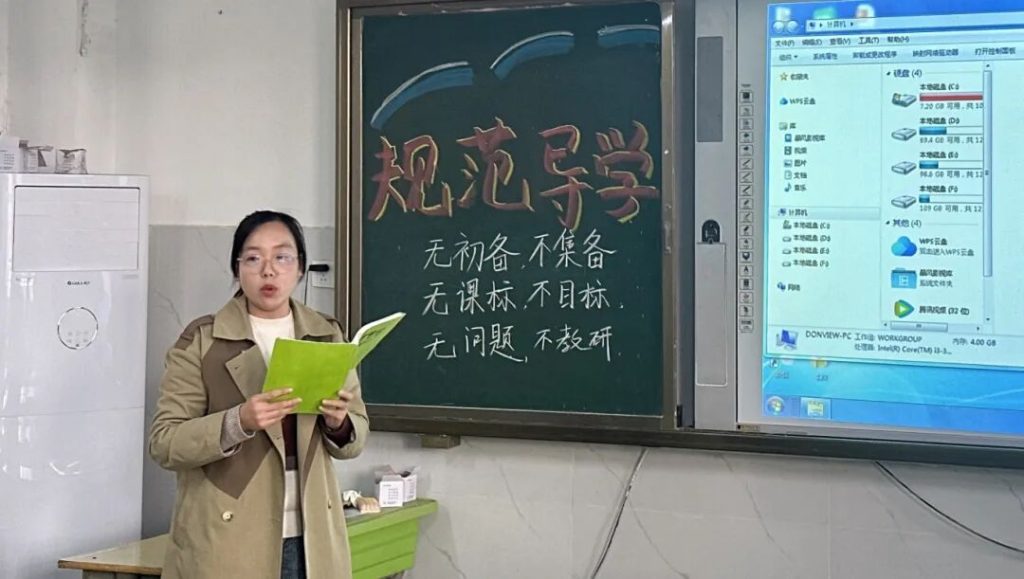 规范导学
无初备,不集备
无课标,不目标.
无问题,不教研.
计算机
文件(F) 编辑(E) 查看(V) 工具(T) 帮助(H)
系统属性 卸载或更改程序 映射网络驱动器 打开控制面板
收藏夹
WPS云盘
库
暴风影视库
视频
图片
文档
音乐
计算机
本地磁盘 (C:)
本地磁盘 (D:)
本地磁盘 (E:)
本地磁盘 (F:)
网络
硬盘 (4)
本地磁盘 (C:)
7.20 GB 可用,共 10
本地磁盘 (D:)
本地磁盘 (E:)
98.6 GB 可用,共 12
本地磁盘 (F:)
109 GB 可用,共 12
其他 (4)
WPS云盘
双击进入WPS云盘
暴风影视库
系统文件夹
腾讯视频 (32 位)
DONVIEW-PC 工作组: WORKGROUP 内存: 4.00 GB
处理器: Intel(R) Core(TM) i3-3...